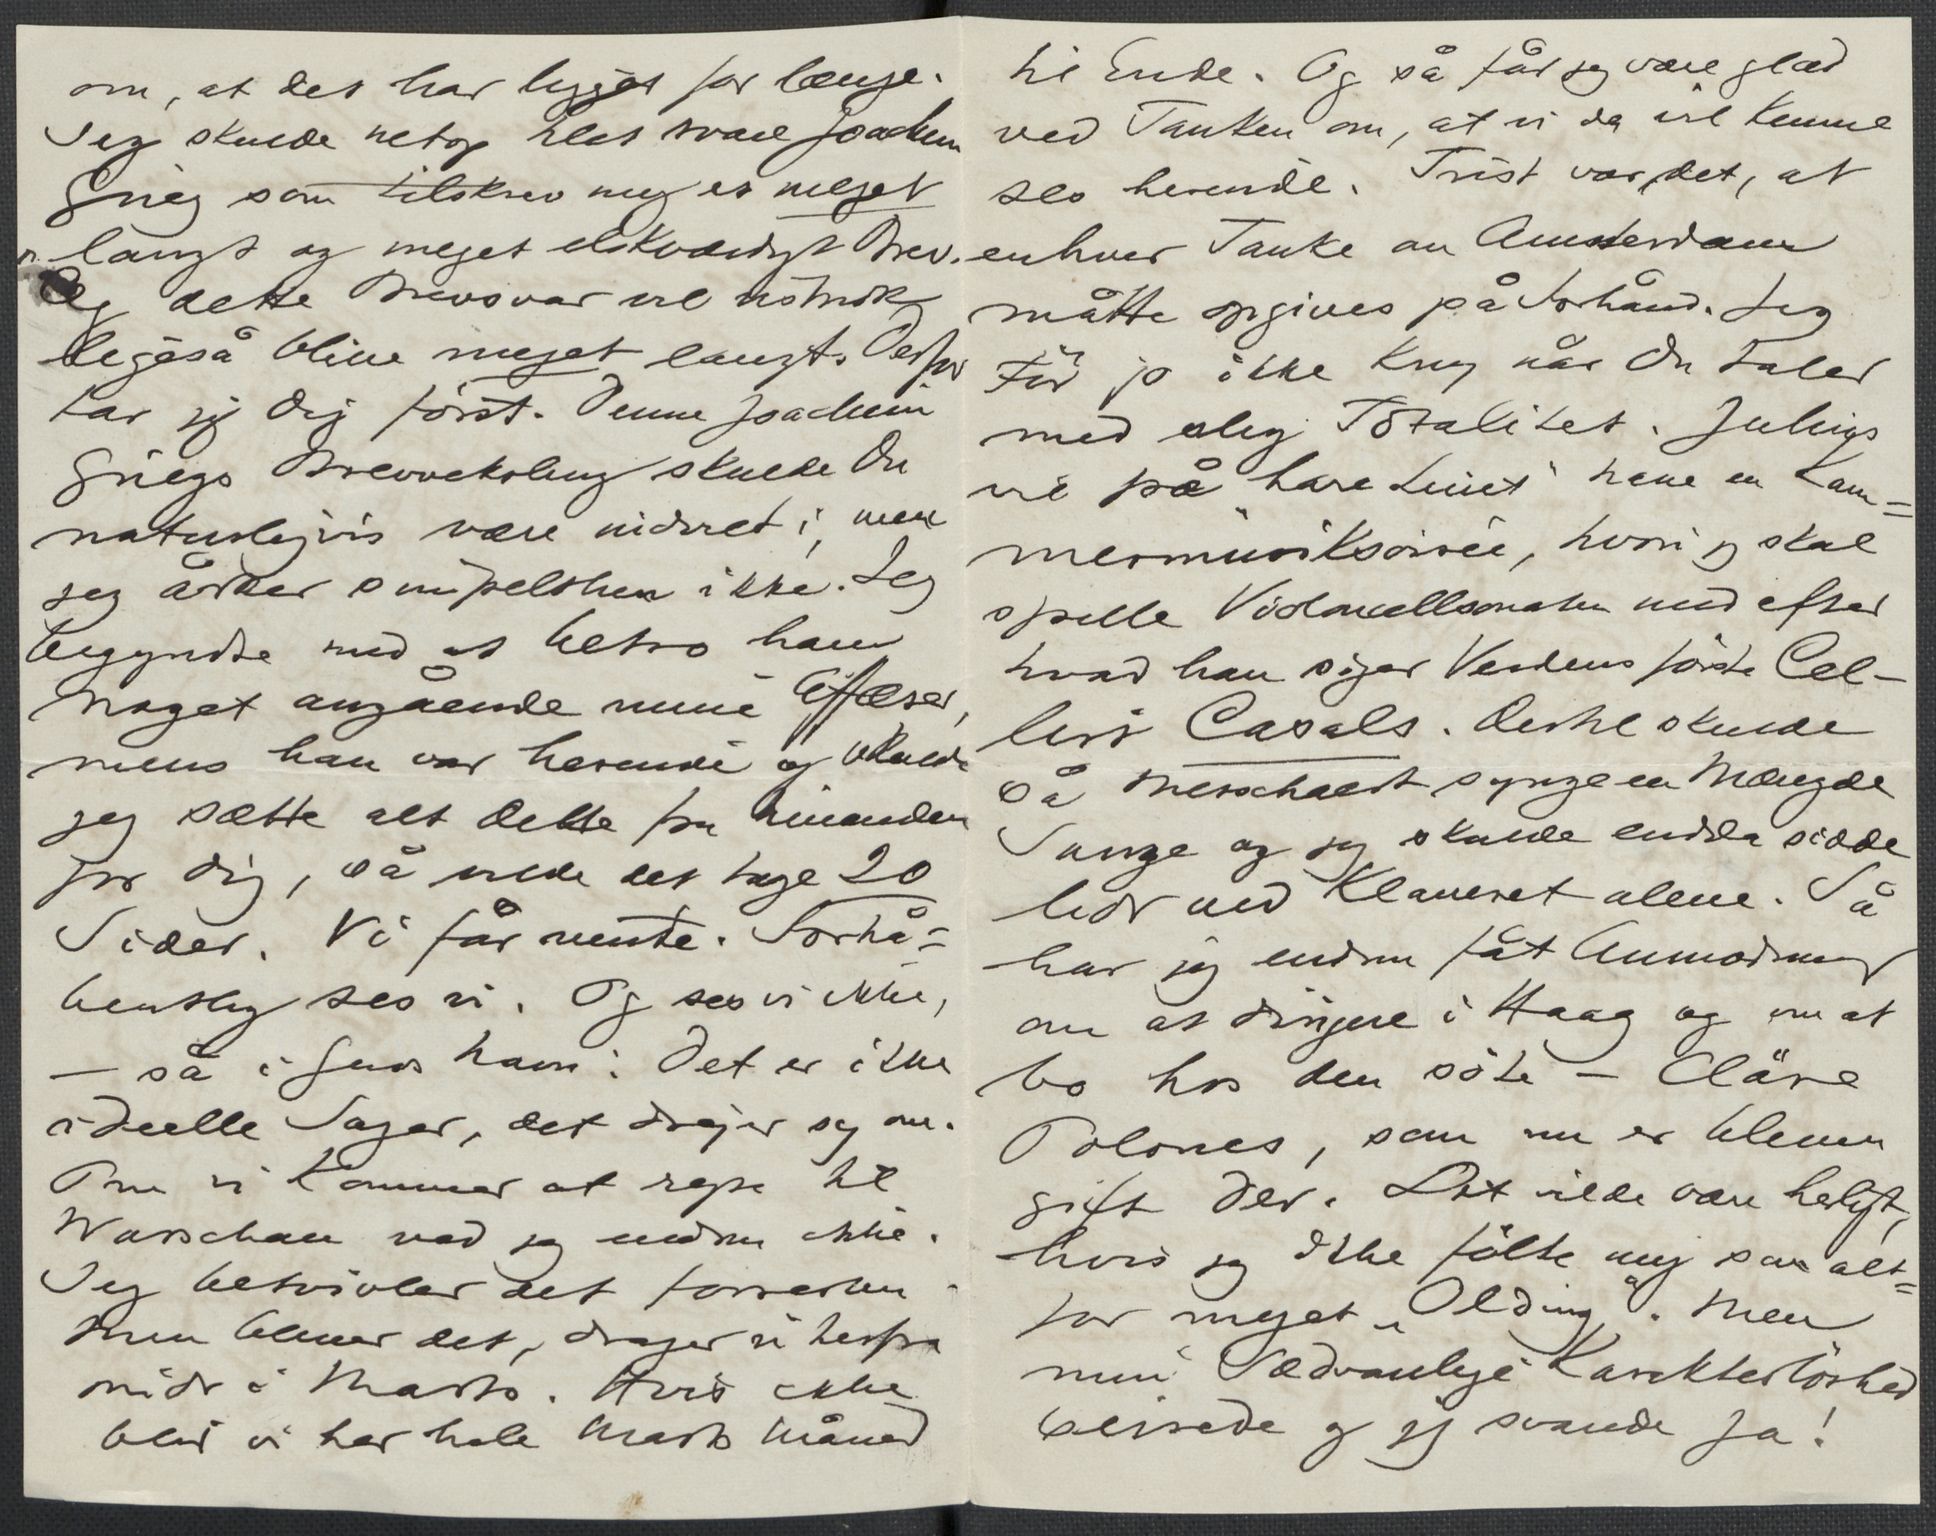 om, at det har ligget for længe.
Jeg skulde netop ha svare Joachim
Grieg som tilskrev mig et meget
langt og meget elskværdigt Brev.
Og dette Brevsvar vil
ligeså blive meget langt. Derfor
tar jeg Dig först. Denne Joachim
Griegs Brevveksling skulde Du
naturligvis være indviet i, men
jeg orker simpelthen ikke. Jeg
begyndte med at betro ham
Noget angående mine Affærer,
mens han var herinde og skulde
jeg sætte alt dette fra hinanden
for Dig, så vilde det tage 20
Sider. Vi får vente. Forhå=
bentlig ses vi. Og ses vi ikke,
– så i Guds Navn: Det er ikke
ideelle Sager, det drejer sig om.
Om vi kommer at rejse til
Warschau ved jeg endnu ikke.
Jeg betvivler det forresten.
Men bliver det, drager vi herfra
midt i Marts. Hvis ikke
blir vi her hele Marts Måned
til Ende. Og så får jeg være glad
ved Tanken om, at vi da vil kunne
ses herinde. Trist var det, at
enhver Tanke om Amsterdam
måtte opgives på Forhånd. Jeg
tör jo ikke kny når Du taler
med slig Totalitet. Julius
vil på bare Livet have en Kam=
mermusiksoirée, hvori jeg skal
spille Violoncellsonaten med efter
hvad han siger Verdens förste Cel-
list Casals. Dertil skulde
så Messchaert synge en Mængde
Sange og jeg skulde endda sidde
lidt ved Klaveret alene. Så
har jeg endnu fåt Anmodning
om at dirigere i Haag og om at
bo hos den söte – Cläre
Polones, som nu er bleven
gift der. Det vilde være herligt,
hvis jeg ikke fölte mig som alt=
for meget „Olding". Men
min sædvanlige Karakterlöshed
seirede og jeg svarede Ja!